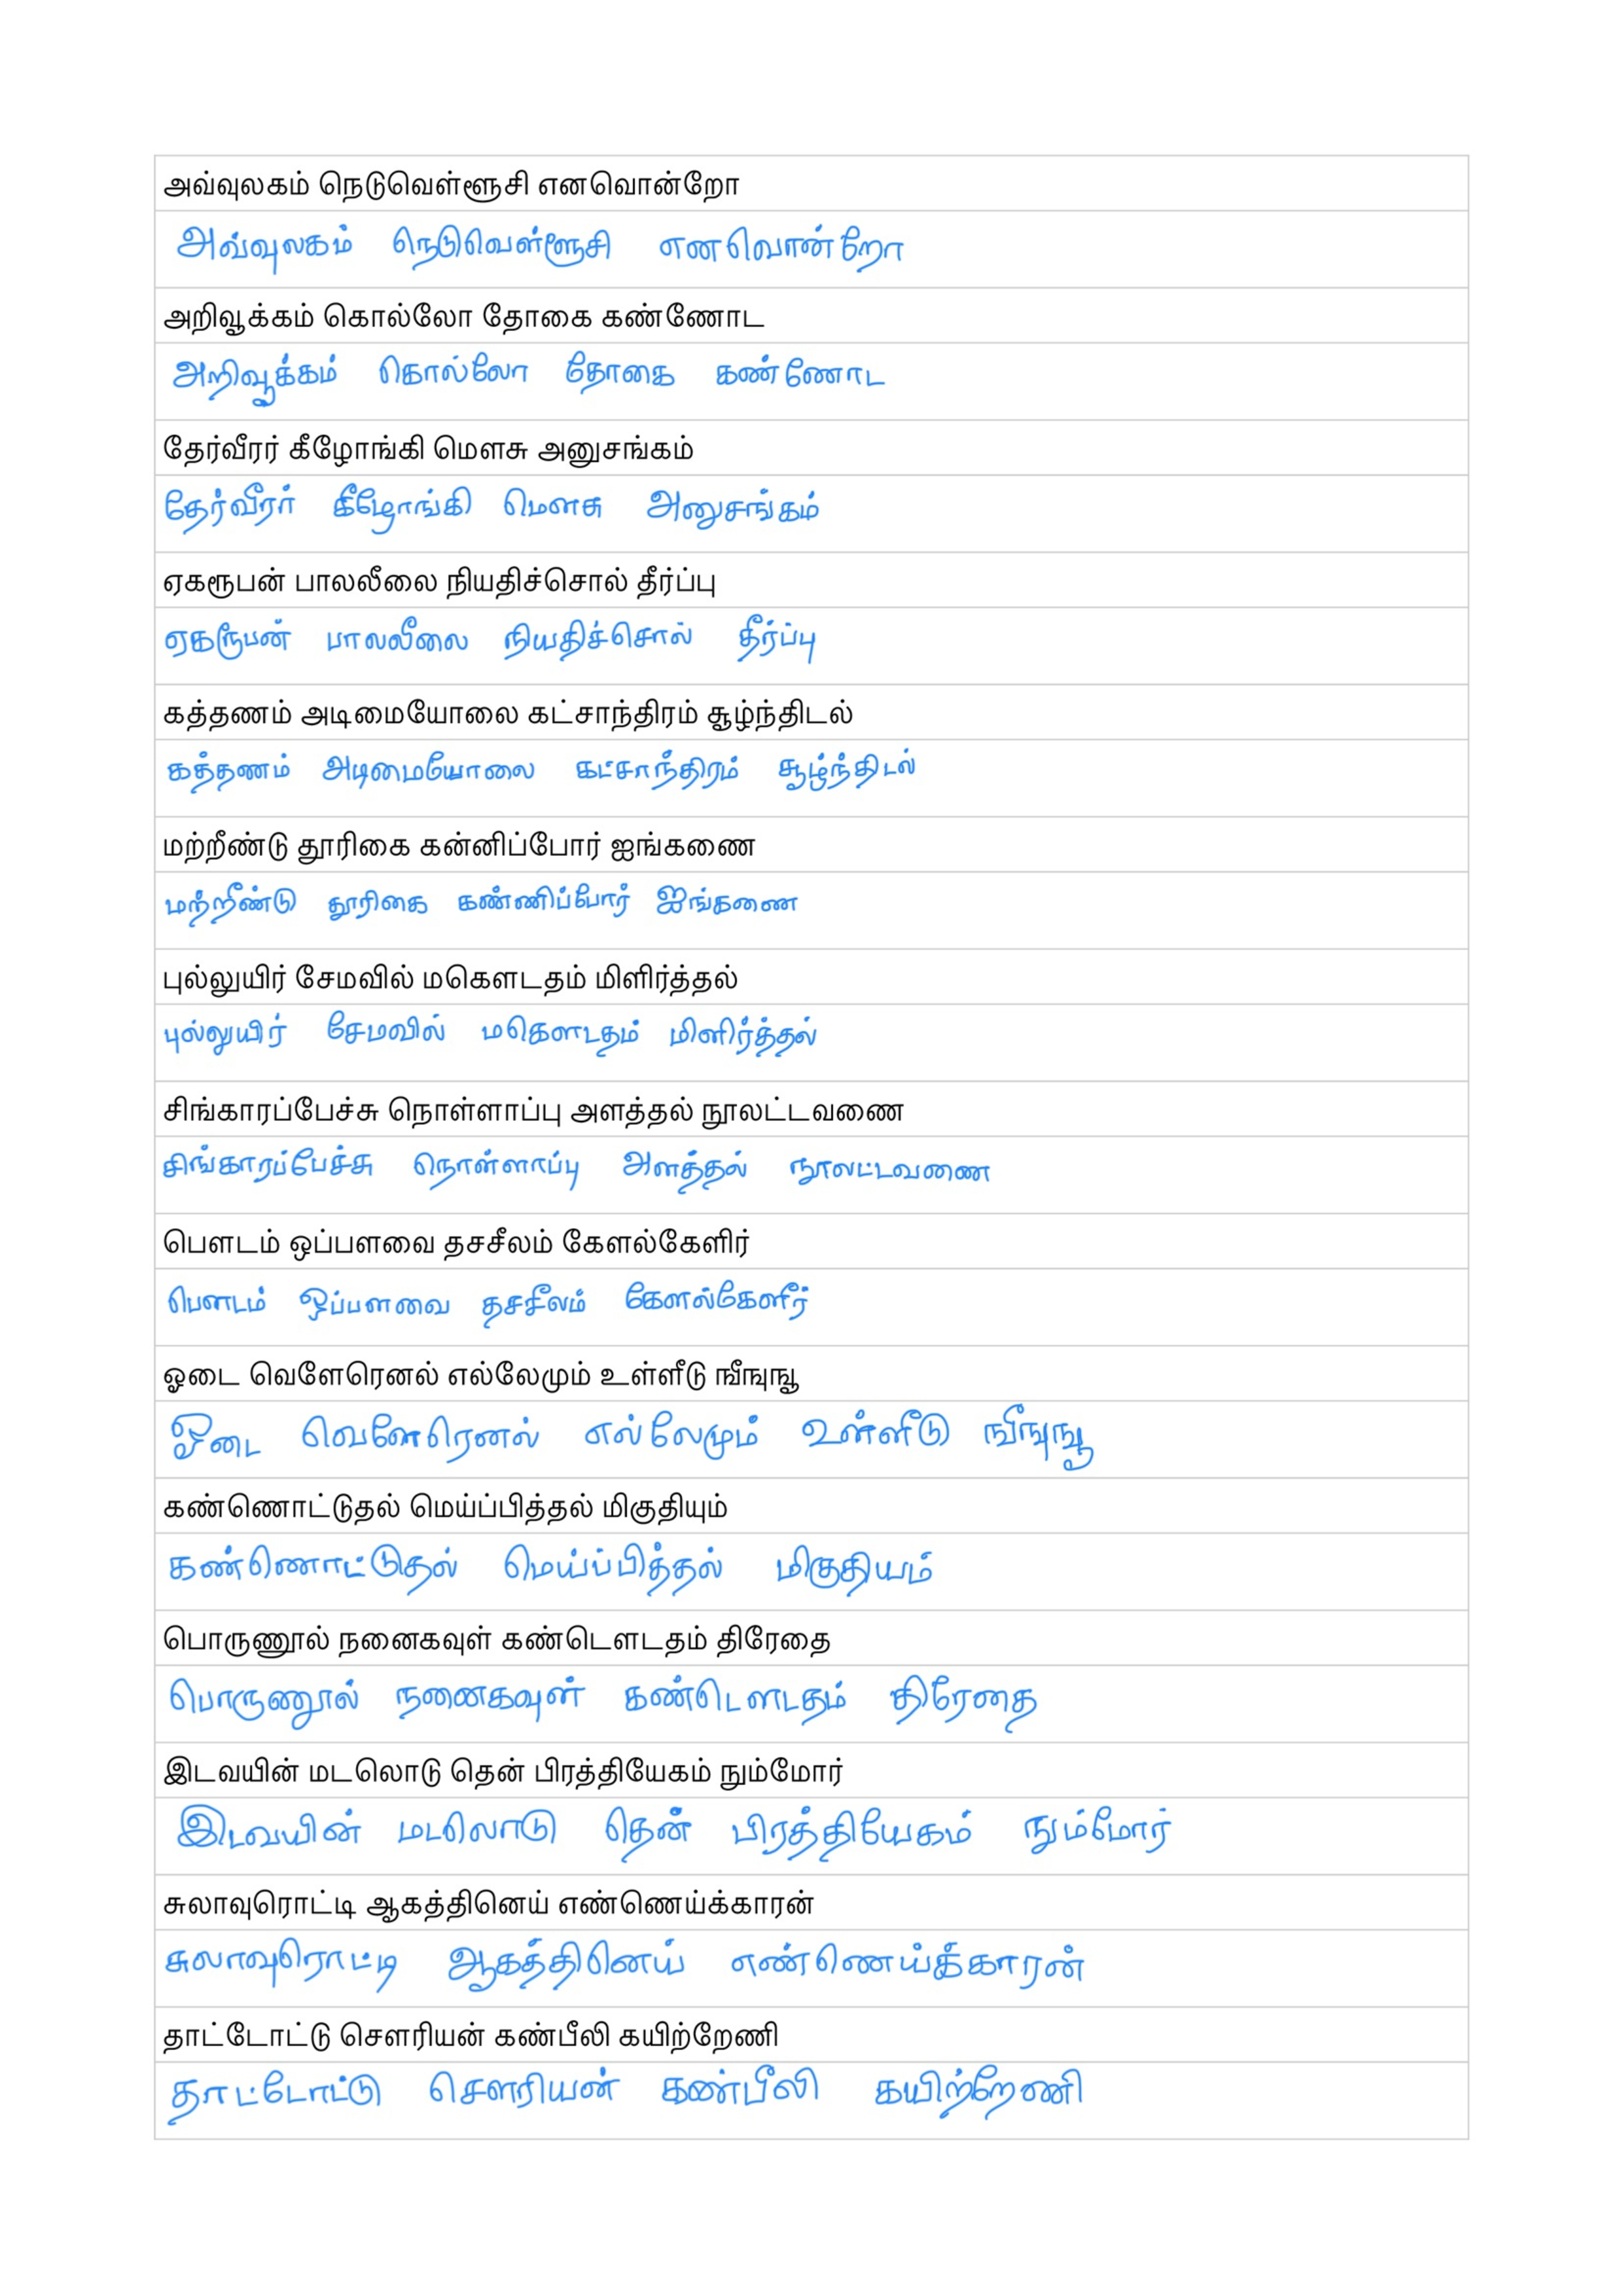 அவ்வுலகம் நெடுவெள்ளூசி எனவொன்றோ
அவ்வுலகம் நெடுவெள்ளூசி எனவொன்றோ
அறிவூக்கம் கொல்லோ தோகை கண்ணோட
அறிவூக்கம் கொல்லோ தோகை கண்ணோட
தேர்வீரர் கீழோங்கி மௌசு அனுசங்கம்
தேர்வீரர் கீழோங்கி மௌசு அனுசங்கம்
ஏகரூபன் பாலலீலை நியதிச்சொல் தீர்ப்பு
ஏகரூபன் பாலலீலை நியதிச்சொல் தீர்ப்பு
கத்தணம் அடிமையோலை கட்சாந்திரம் சூழ்ந்திடல்
கத்தணம் அடிமையோலை கட்சாந்திரம் சூழ்ந்திடல்
மற்றீண்டு தூரிகை கன்னிப்போர் ஐங்கணை
மற்றீண்டு தூரிகை கண்ணிப்போர் ஐங்கணை
புல்லுயிர் சேமவில் மகௌடதம் மிளிர்த்தல்
புல்லுயிர் சேமவில் மகௌடதம் மிளிர்த்தல்
சிங்காரப்பேச்சு நொள்ளாப்பு அளத்தல் நூலட்டவணை
சிங்காரப்பேச்சு நொள்ளாப்பு அளத்தல் நூலட்டவணை
பௌடம் ஒப்பளவை தசசீலம் கேளல்கேளிர்
பௌடம் ஒப்பளவை தசசீலம் கேளல்கேளீர்
ஓடை வெளேரெனல் எல்லேமும் உள்ளீடு ஙீஙுஙூ
ஓடை வெளேரெனல் எல்லேமும் உள்ளீடு ஙீஙுஙூ
கண்ணொட்டுதல் மெய்ப்பித்தல் மிகுதியும்
கண்ணொட்டுதல் மெய்ப்பித்தல் மிகுதியம்
பொருணூல் நனைகவுள் கண்டௌடதம் திரேதை
பொருணூல் நனைகவுள் கண்டௌடதம் திரேதை
இடவயின் மடலொடு தென் பிரத்தியேகம் நும்மோர்
இடவயின் மடலொடு தென் பிரத்தியேகம் நும்மோர்
சுலாவுரொட்டி ஆகத்தினெய் எண்ணெய்க்காரன்
சுலாவுரொட்டி ஆகத்தினெய் எண்ணெய்க்காரன்
தாட்டோட்டு சௌரியன் கண்பீலி கயிற்றேணி
தாட்டோட்டு சௌரியன் கண்பீலி கயிற்றேணி